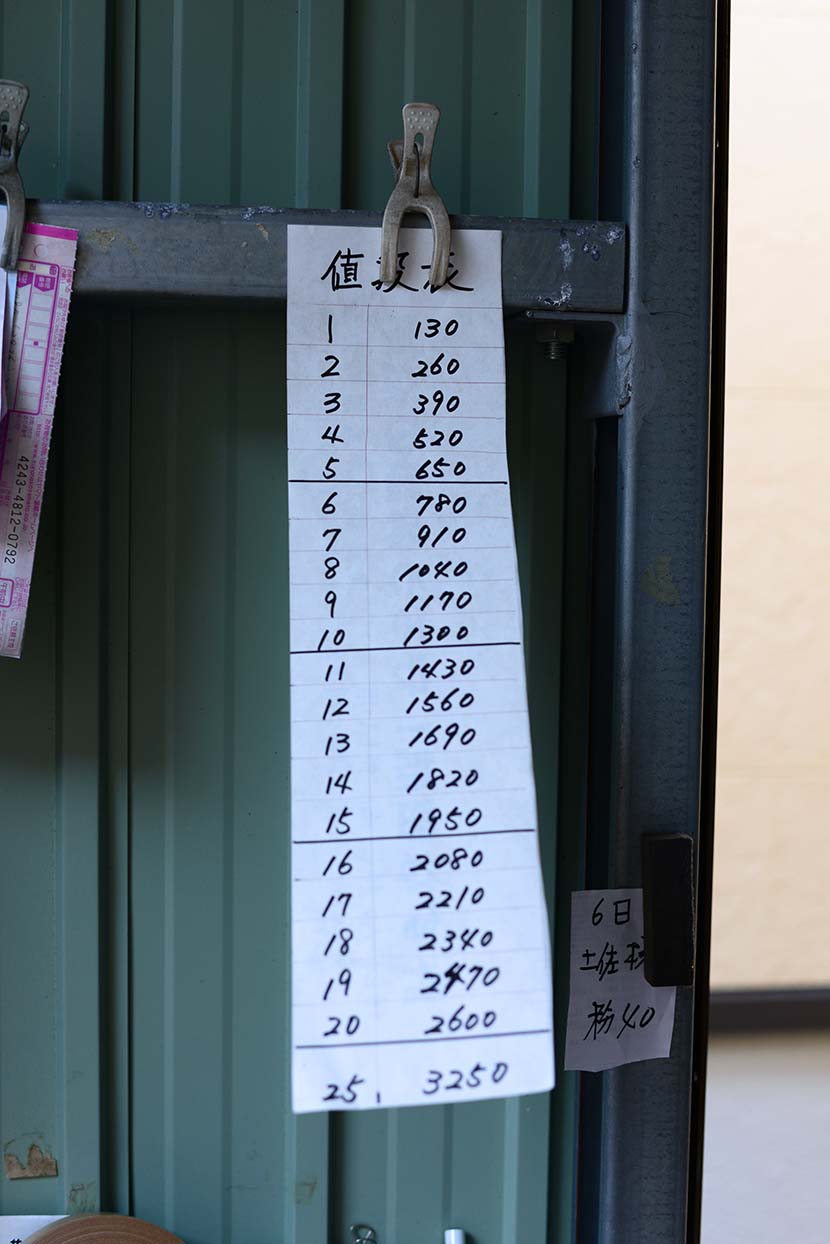 値段表
1 130
2 260
3 390
4 520
5 650
6 780
7 910
8 1040
9 1170
10 1300
11 1430
12 1560
13 1690
14 1820
15 1950
16 2080
17 2210
18 2340
19 2470
20 2600
25, 3250
6日
土佐
粉40
4243-4812-0792